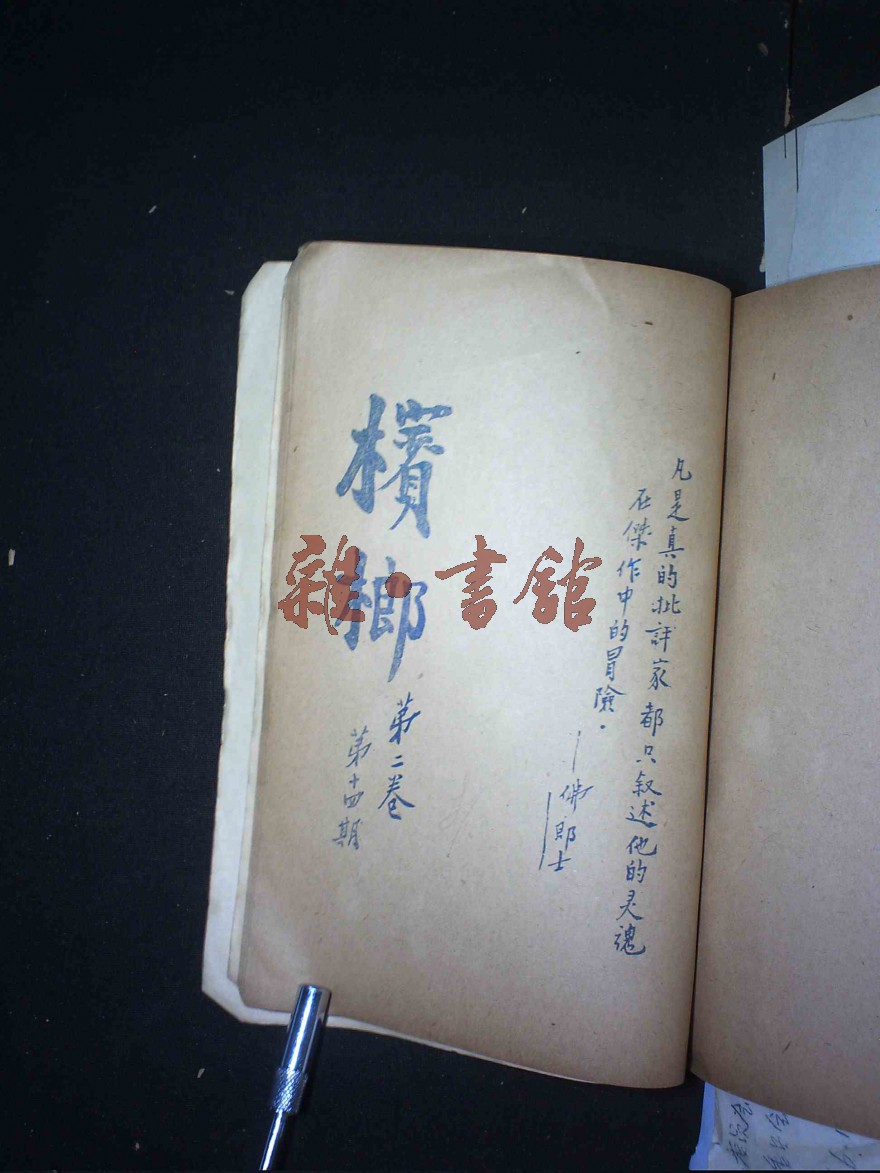 凡是真的批評家都只叙述他的灵魂
在傑作中的冒險．
—佛郎士
檳榔
第二卷
第十四期
雜·書館